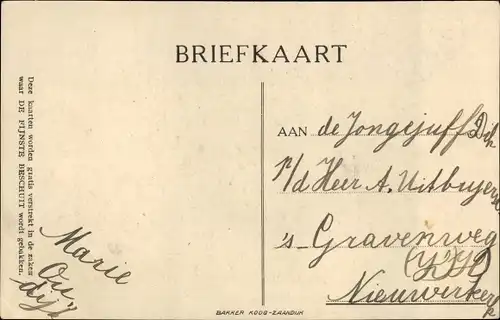 BRIEFKAART
Deze kaarten worden gratis verstrekt in de zaken
waar DE FIJNSTE BESCHUIT wordt gebakken.
AAN de Jongejuff D
p/d Heer A. Uitbuyers
's-Gravenweg
Nieuwerkerk
Marie
BAKKER KOOG-ZAANDIJK